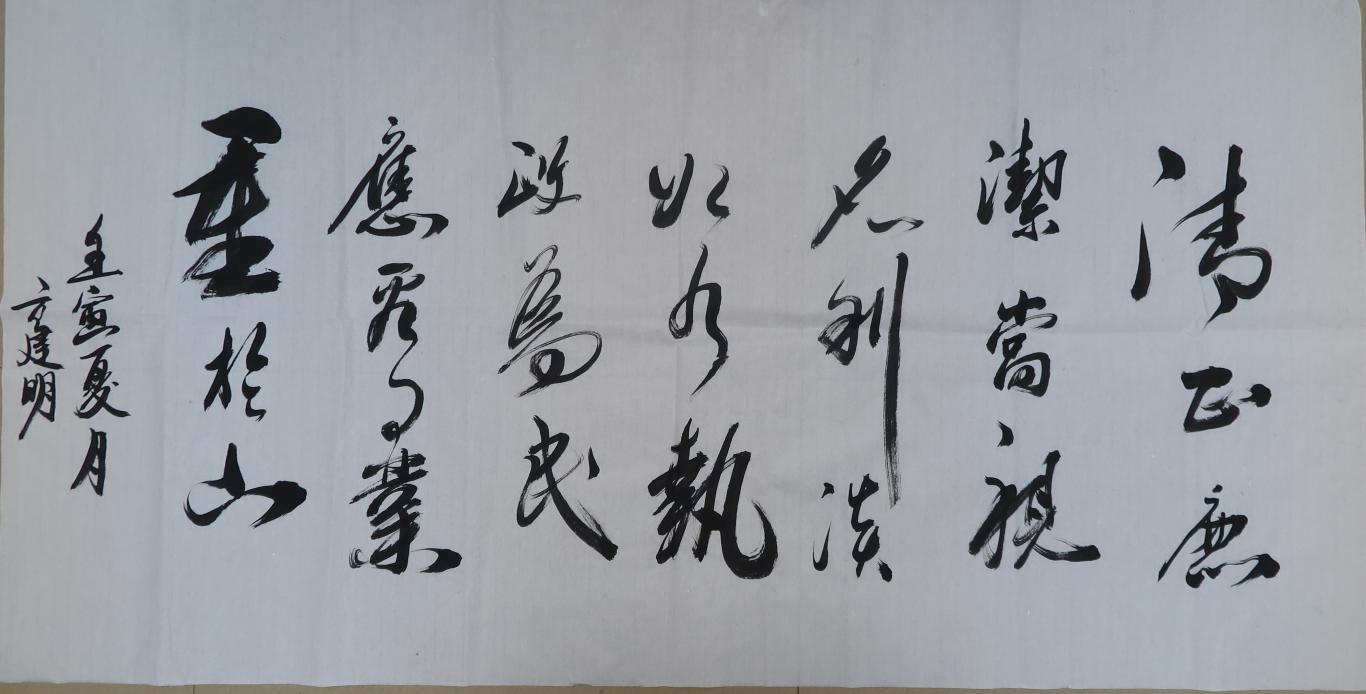 清正廉
潔當視
名利淡
如水執
政為民
應看事業
重於山
壬寅夏月
方建明